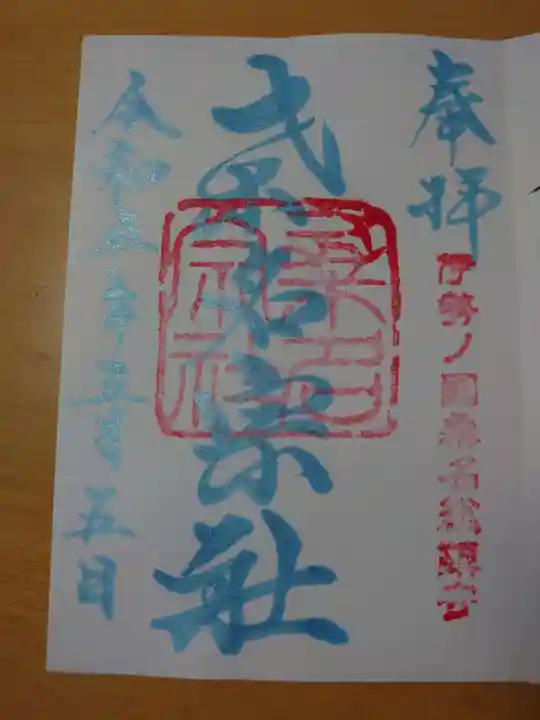 奉拝
伊勢ノ國桑名総鎮守
桑名宗社
桑名
宗社
令和五年五月五日